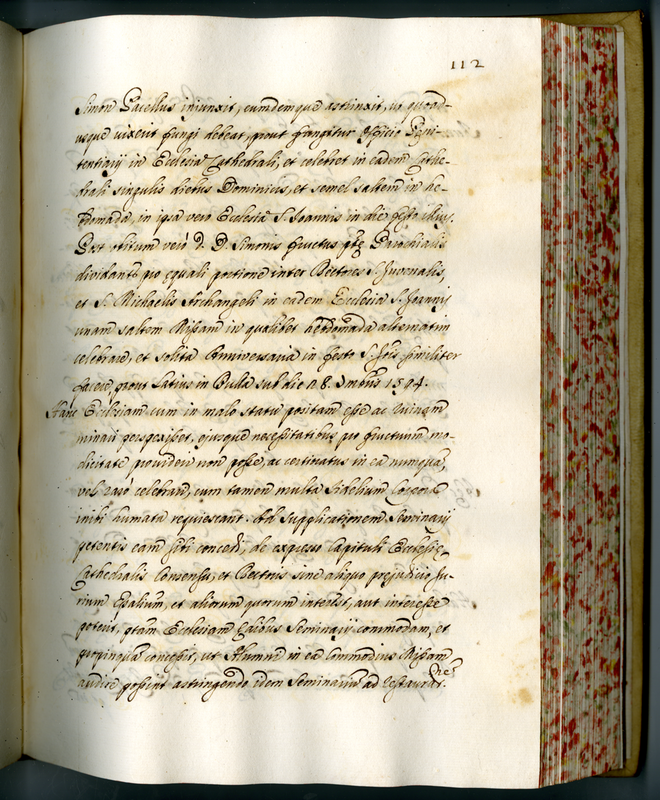 112
Simon Pacellus iniunxit, eumdemque astrinxit, ut quoad-
usque vixerit fungi debeat, prout fungitur officio Pęni-
tentiarij in Ecclesia Cathedrali, et celebret in eadem Cathe-
drali singulis diebus Dominicis, et semel saltem in he-
bdomada, in ipsa vero Ecclesia S. Joannis in die festo illius.
Post obitum verò D. D. Simonis fructus ptę Parochialis
dividant pro equali portione inter Rectores S. Juvenalis,
et S. Michaelis Archangeli in eadem Ecclesia S. Joannis
unam saltem Missam in qualibet hebdomada alternatim
celebrare, et solita Anniversaria in festo S. Jois similiter
facere, prout latius in Bulla sub die 18. Xmbris 1504.
Hanc Ecclesiam cum in malo statu positam esse ac ruinam
minari perspexisset, ejusque necessitatibus pro fructuum mo-
dicitate provideri non posse, ac certinatus in ea numquã,
vel raro celebrari, cum tamen multa fidelium Corpora
inibi humata requiescant. Ad supplicationem Seminarij
petentis eam sibi concedi, de expresso Capituli Ecclesię
Cathedralis Consensu, et Rectoris sine aliquo prejudicio Ju-
rium Epalium, et aliorum quorum interest, aut interesse
poterit, ptam Ecclesiam Ędibus Seminarij commodam, et
propinquã concessit, ut Alumni in ea Commodius Missam
audire possint astringendo idem Seminarium ad restaurat.nes